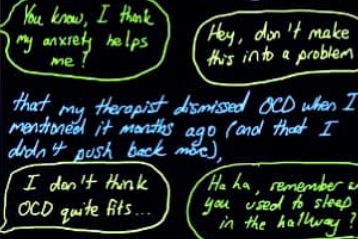 You know, I think
my anxiety helps
me?
Hey, don't make
this into a problem
that my therapist dismissed OCD when I
mentioned it months ago (and that I
didn't push back more),
I don't think
OCD quite fits...
Ha ha, remember
you used to sleep
in the hallway?